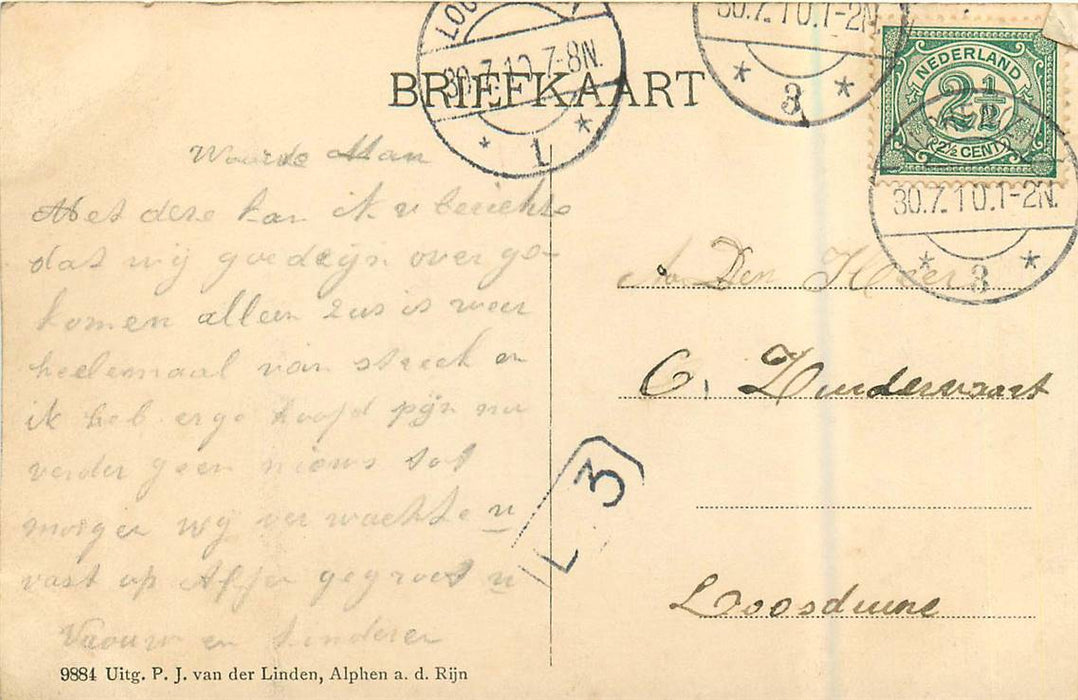 LOO
30.7.10.7-8N.
1
30.7.10.1-2N.
3
NEDERLAND
2½
2½ CENT
30.7.10.1-2N.
3
BRIEFKAART
Waarde Man
Met deze kan ik u berichte
dat wij goed zijn over ge-
komen alleen zus is weer
heelemaal van streek en
ik heb erge hoofd pijn nu
verder geen nieuws tot
morgen wij verwachte u
vast op Alfen gegroet u
Vrouw en kinderen
Den Heer
C. Zuidervaart
Loosduine
L 3
9884 Uitg. P. J. van der Linden, Alphen a. d. Rijn